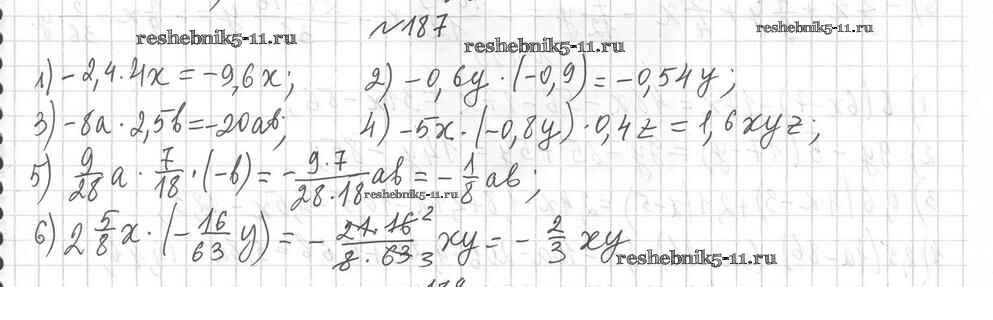 №187
reshebnik5-11.ru reshebnik5-11.ru reshebnik5-11.ru
1) -2,4·4x = -9,6x; 2) -0,6y · (-0,9) = -0,54y;
3) -8a · 2,5b = -20ab; 4) -5x · (-0,8y) · 0,4z = 1,6xyz;
5) 9/28 a · 7/18 · (-b) = - 9·7/28·18 ab = - 1/8 ab;
reshebnik5-11.ru
6) 2 5/8 x · (- 16/63 y) = - 21·16 2/8·63 3 xy = - 2/3 xy
reshebnik5-11.ru